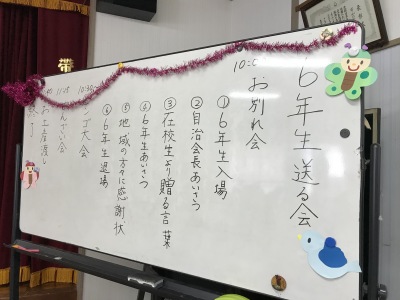 6年生送る会
10:00
お別れ会
①6年生入場
②自治会長あいさつ
③在校生より贈る言葉
④6年生あいさつ
⑤地域の方々に感謝状
⑥6年生退場
10:30
大会
11:05
ぜんざい会
お土産渡し
終了
帯